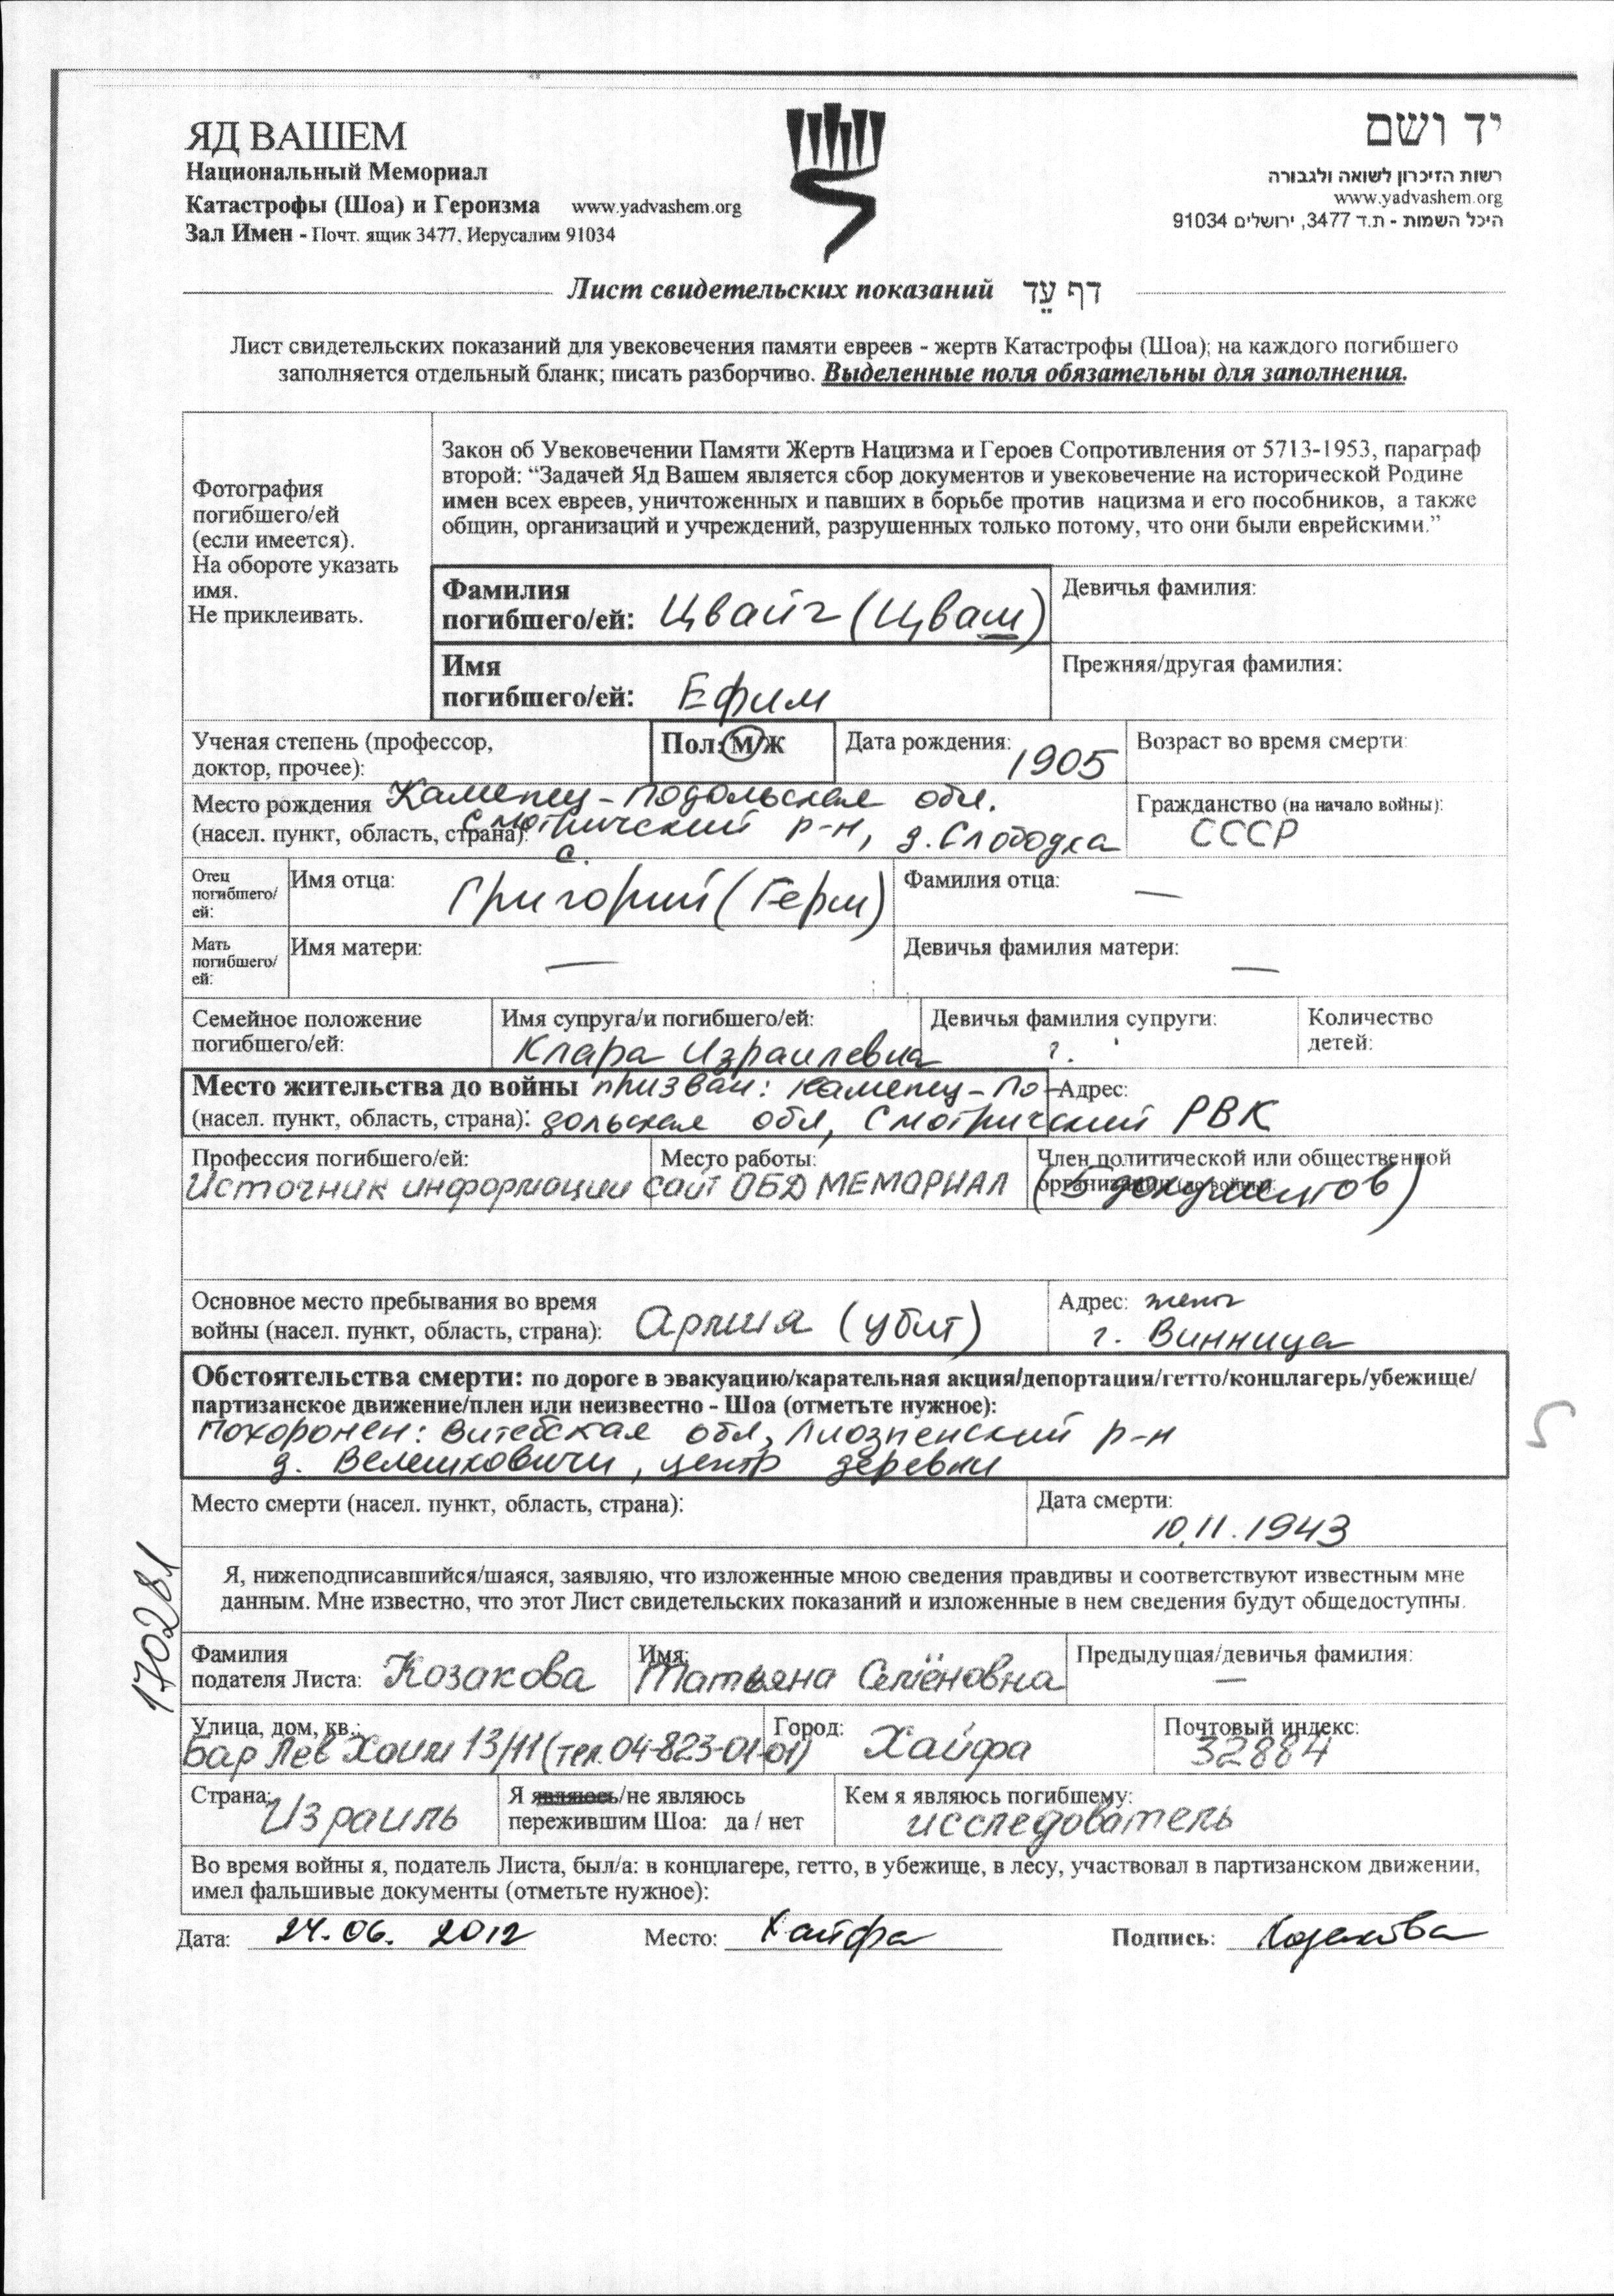 ЯД ВАШЕМ
Национальный Мемориал
Катастрофы (Шоа) и Героизма www.yadvashem.org
Зал Имен - Почт. ящик 3477, Иерусалим 91034
יד ושם
רשות הזיכרון לשואה ולגבורה
www.yadvashem.org
היכל השמות - ת.ד 3477, ירושלים 91034
Лист свидетельских показаний דף עֵד
Лист свидетельских показаний для увековечения памяти евреев - жертв Катастрофы (Шоа); на каждого погибшего
заполняется отдельный бланк; писать разборчиво. Выделенные поля обязательны для заполнения.
Фотография
погибшего/ей
(если имеется).
На обороте указать
имя.
Не приклеивать.
Закон об Увековечении Памяти Жертв Нацизма и Героев Сопротивления от 5713-1953, параграф
второй: “Задачей Яд Вашем является сбор документов и увековечение на исторической Родине
имен всех евреев, уничтоженных и павших в борьбе против нацизма и его пособников, а также
общин, организаций и учреждений, разрушенных только потому, что они были еврейскими.”
Фамилия
погибшего/ей: Цвайг (Цваш)
Девичья фамилия:
Имя
погибшего/ей: Ефим
Прежняя/другая фамилия:
Ученая степень (профессор,
доктор, прочее):
Пол: М/Ж
Дата рождения: 1905
Возраст во время смерти:
Место рождения Каменец-Подольская обл.
(насел. пункт, область, страна): Смотричский р-н, д. Слободка
с.
Гражданство (на начало войны):
СССР
Отец
погибшего/
ей:
Имя отца: Григорий (Герш)
Фамилия отца: —
Мать
погибшего/
ей:
Имя матери: —
Девичья фамилия матери: —
Семейное положение
погибшего/ей:
Имя супруга/и погибшего/ей:
Клара Израилевна
Девичья фамилия супруги:
г.
Количество
детей:
Место жительства до войны призван: Каменец-По-
(насел. пункт, область, страна): дольская обл, Смотричский РВК
Адрес:
Профессия погибшего/ей:
Место работы:
Член политической или общественной
организации (до войны):
Источник информации сайт ОБД МЕМОРИАЛ (5 документов)
Основное место пребывания во время
войны (насел. пункт, область, страна): Армия (убит)
Адрес: жены
г. Винница
Обстоятельства смерти: по дороге в эвакуацию/карательная акция/депортация/гетто/концлагерь/убежище/
партизанское движение/плен или неизвестно - Шоа (отметьте нужное):
Похоронен: Витебская обл, Лиозненский р-н
д. Велешковичи, центр деревни
5
Место смерти (насел. пункт, область, страна):
Дата смерти:
10.11.1943
170281
Я, нижеподписавшийся/шаяся, заявляю, что изложенные мною сведения правдивы и соответствуют известным мне
данным. Мне известно, что этот Лист свидетельских показаний и изложенные в нем сведения будут общедоступны.
Фамилия
подателя Листа: Козакова
Имя:
Татьяна Семёновна
Предыдущая/девичья фамилия:
—
Улица, дом, кв.:
Бар Лев Хаим 13/11 (тел. 04-823-01-01)
Город: Хайфа
Почтовый индекс:
32884
Страна: Израиль
Я являюсь/не являюсь
пережившим Шоа: да / нет
Кем я являюсь погибшему:
исследователь
Во время войны я, податель Листа, был/а: в концлагере, гетто, в убежище, в лесу, участвовал в партизанском движении,
имел фальшивые документы (отметьте нужное):
Дата: 24.06. 2012 Место: Хайфа Подпись: Козакова